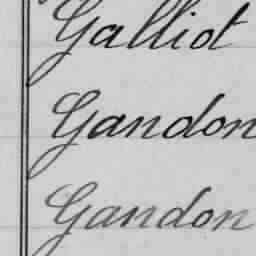 Galliot
Gandon
Gandon